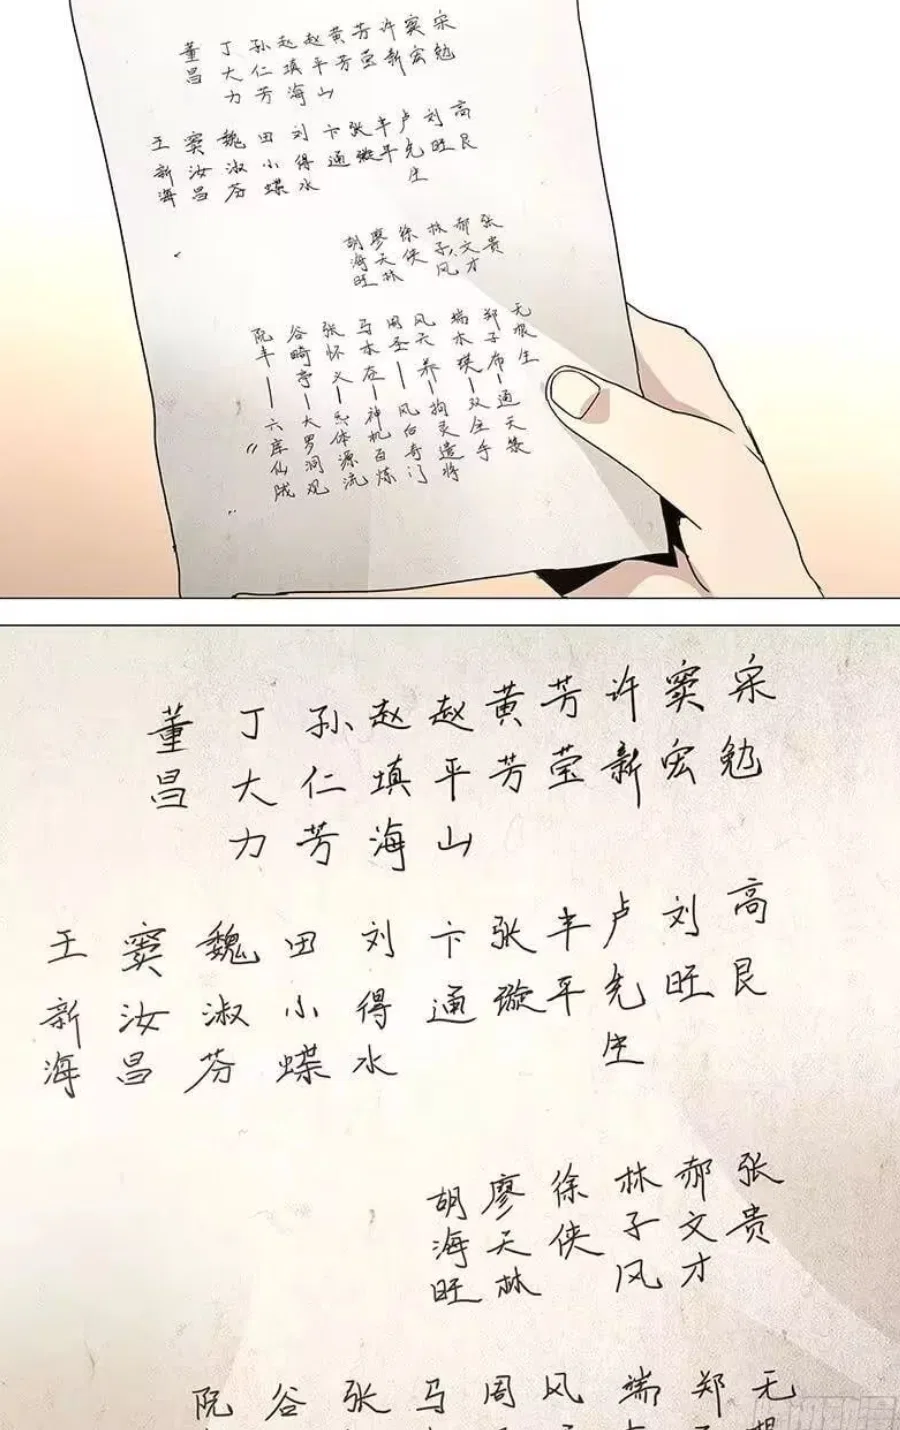 宋勉
窦宏
许新
芳莹
黄芳
赵平山
赵填海
孙仁芳
丁大力
董昌
高艮
刘旺
卢先生
丰平
张璇
卞通
刘得水
田小蝶
魏淑芬
窦汝昌
王新海
张贵
郝文才
林子风
徐侠
廖天林
胡海旺
无根生
郑子布—通天箓
端木瑛—双全手
风天养—拘灵遣将
周圣—风后奇门
马本在—神机百炼
张怀义—炁体源流
谷畸亭—大罗洞观
阮丰—六库仙贼
宋勉
窦宏
许新
芳莹
黄芳
赵平山
赵填海
孙仁芳
丁大力
董昌
高艮
刘旺
卢先生
丰平
张璇
卞通
刘得水
田小蝶
魏淑芬
窦汝昌
王新海
张贵
郝文才
林子风
徐侠
廖天林
胡海旺
无根
郑
端
风
周
马
张
谷
阮